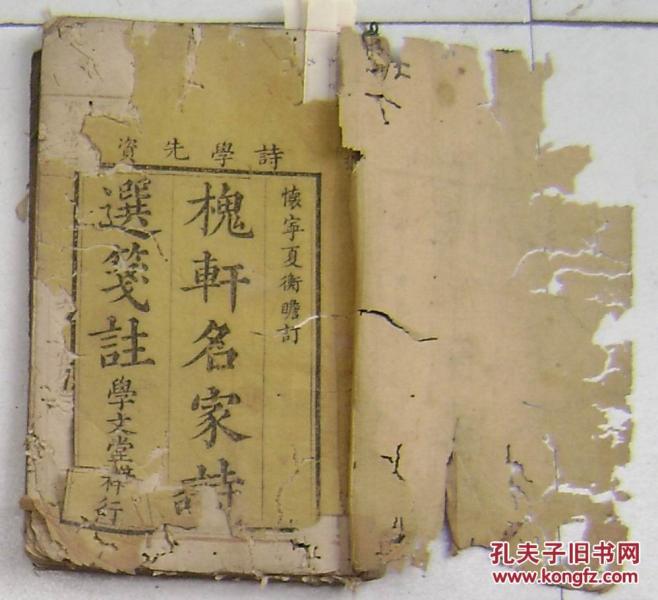 詩學先資
懷寧夏衡瞻訂
槐軒名家詩
選箋註
學文堂梓行
孔夫子旧书网
www.kongfz.com